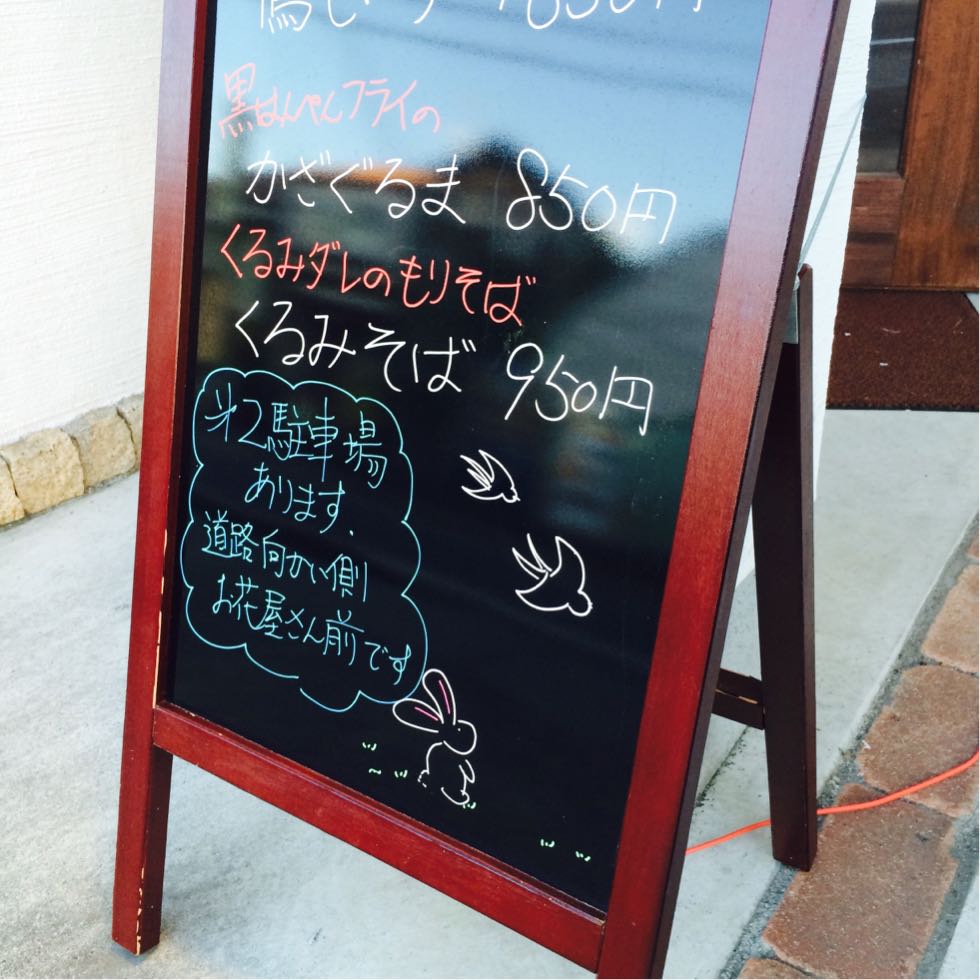 黒はんぺんフライの
かざぐるま 850円
くるみダレのもりそば
くるみそば 950円
第2駐車場
あります.
道路向かい側
お花屋さん前です